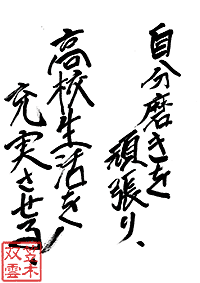 自分磨きを
頑張り、
高校生活を
充実させる!
笠木
双雲